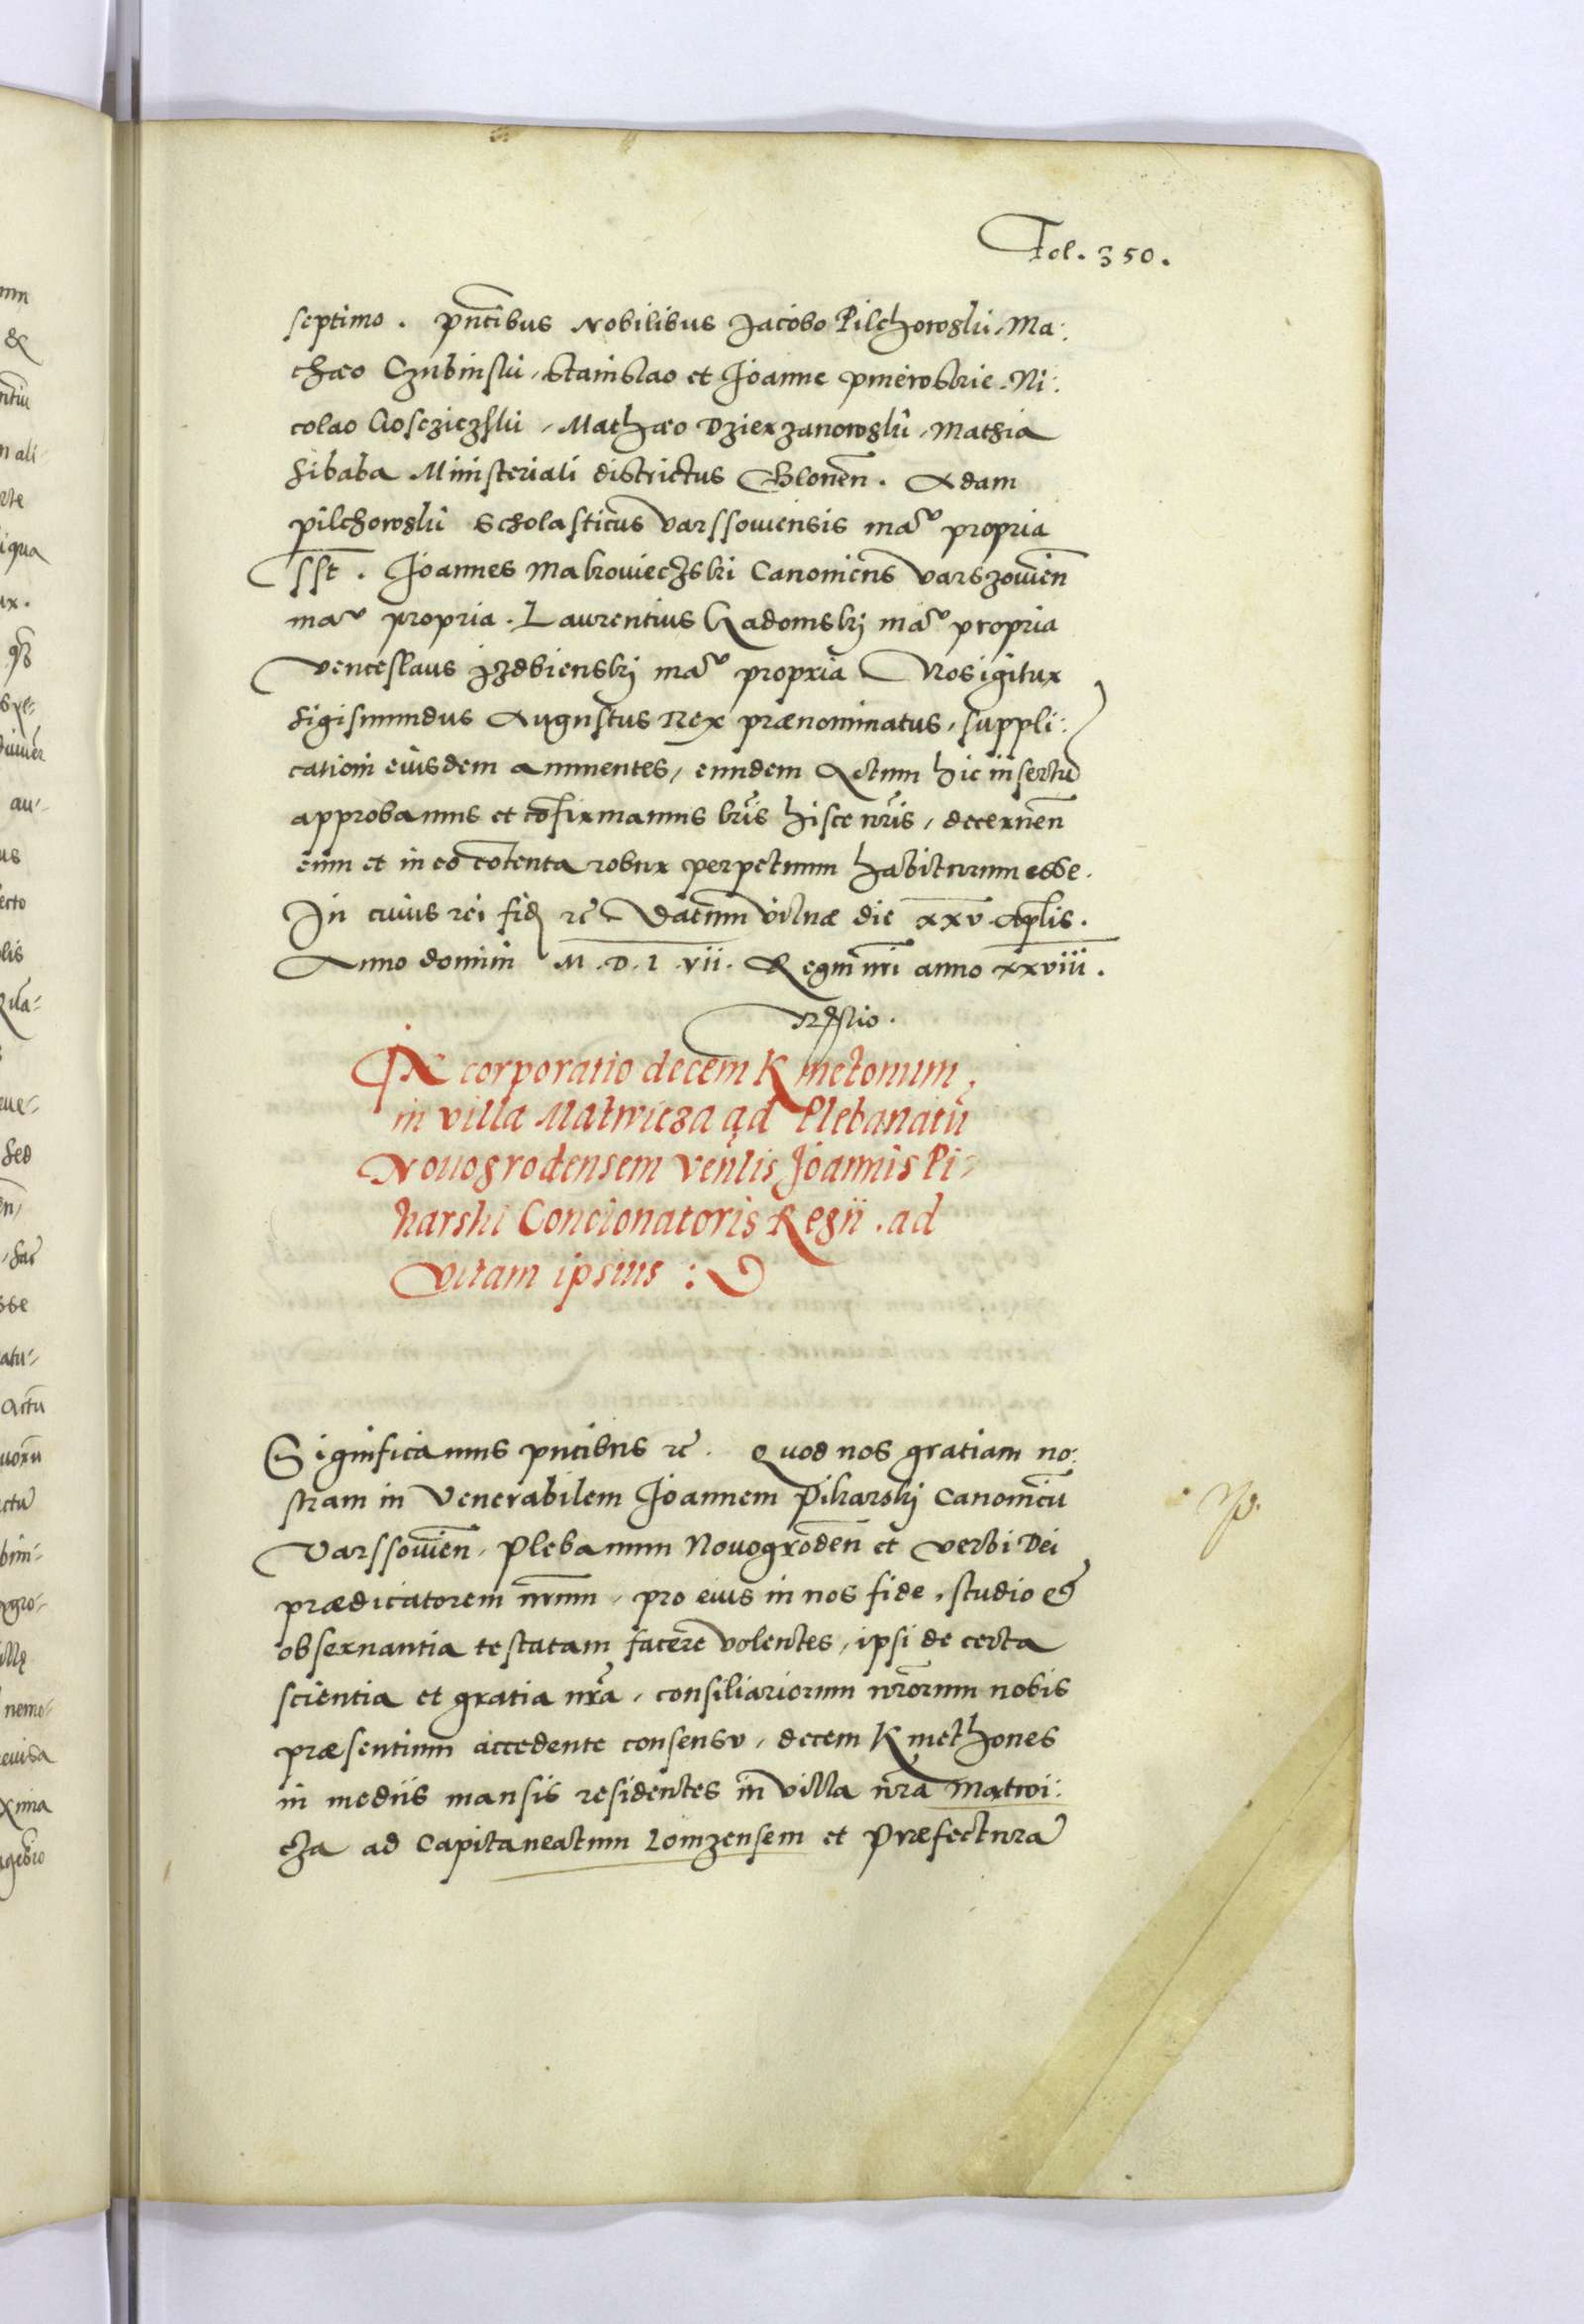 Fol. 350.
septimo. pntibus Nobilibus Jacobo Pilchowski, Ma:
thæo Czubinski, Stanislao et Joanne Pnierowskie. Ni:
colao Gosczieczski, Mathæo Dzierzanowski, Mathia
Sibaba Ministeriali districtus Blonen. Adam
Pilchowski Scholasticus Varssoviensis mãu propria
sst. Joannes Makowieczski Canonicus Varszovien
mau propria. Laurentius Radomskij mãu propria
Venceslaus Izdbienskij mãu propria Nos igitur
Sigismundus Augustus Rex prænominatus, suppli:
cationi eiusdem annuentes, eundem Actum hic insertũ
approbamus et cõfirmamus lris hisce nris, decernen
eum et in eo cõtenta robur perpetuum habiturum esse.
In cuius rei fid rc Datum Vilnæ die xxv Aplis.
Anno domini M.D.L.vii. Regni nri anno xxviii.
Rɫɫio.
Incorporatio decem Kmetonum
in villa Matwicza ad Plebanatũ
Novogrodensem Venlis Joannis Pi-
karski Concionatoris Regii. ad
vitam ipsius :
Significamus pntibus rc. Quod nos gratiam no:
stram in Venerabilem Joannem Pikarskij Canonicũ
Varssovien, Plebanum Novogroden et verbi Dei
prædicatorem nrum, pro eius in nos fide, studio &
observantia testatam facere volentes, ipsi de certa
scientia et gratia nra, consiliariorum nrorum nobis
præsentium accedente consensu, decem Kmethones
in mediis mansis residentes in villa nra Matwi:
cza ad Capitaneatum Lomzensem et Præfecturã